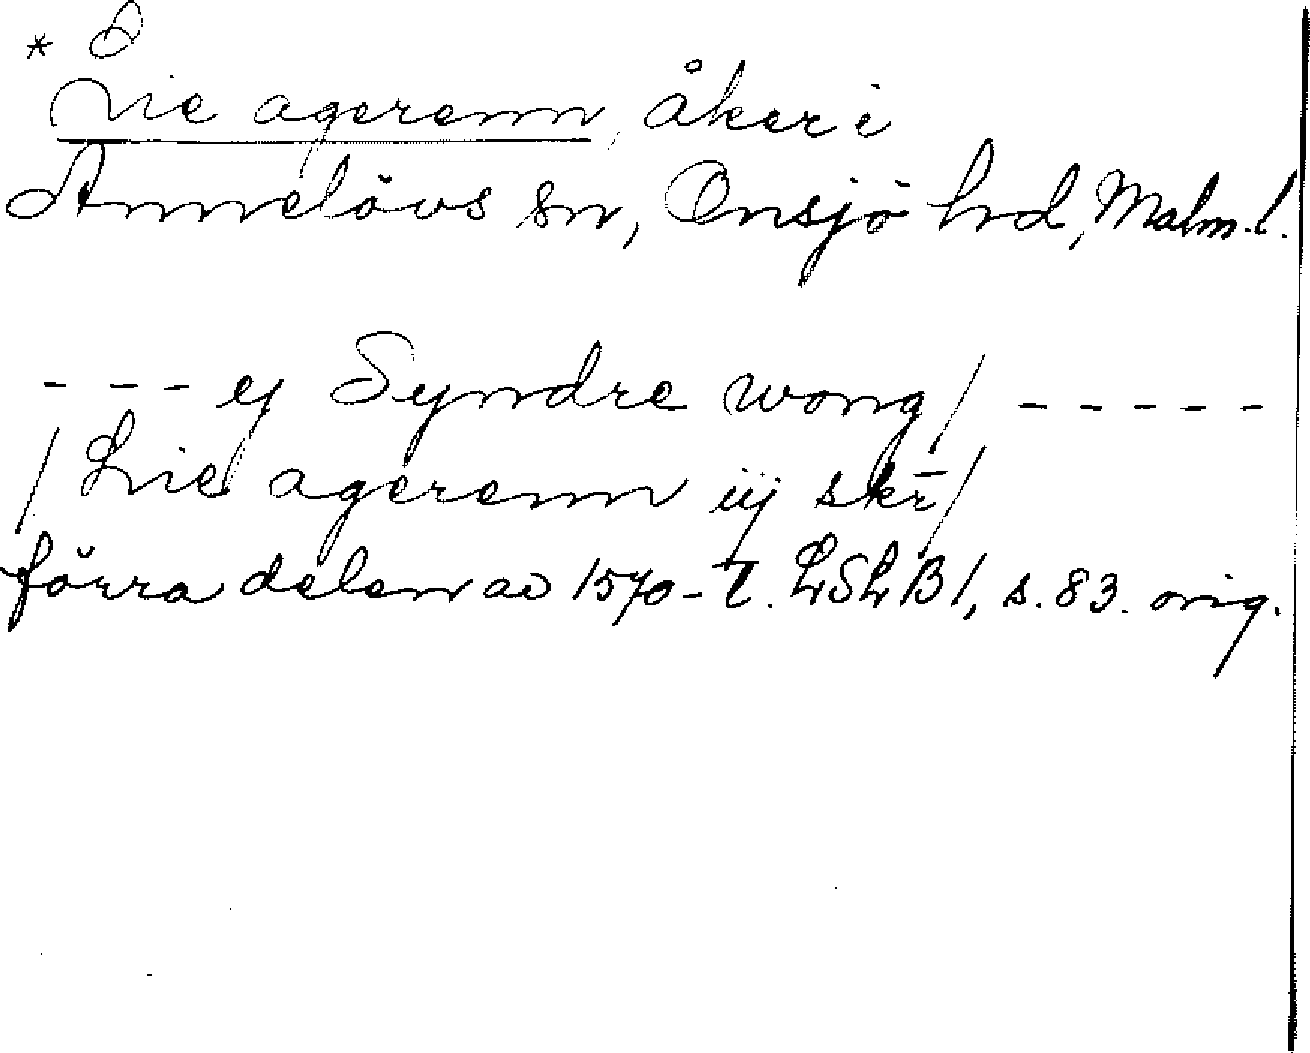 * Lie agerenn, åker i
Annelövs sn, Onsjö hd, Malm. l.
- - - ej Syndre wong / - - - - -
/ Lie agerenn iij skr̄ /
förra delen av 1570-t. LSLB 1, s. 83. orig.